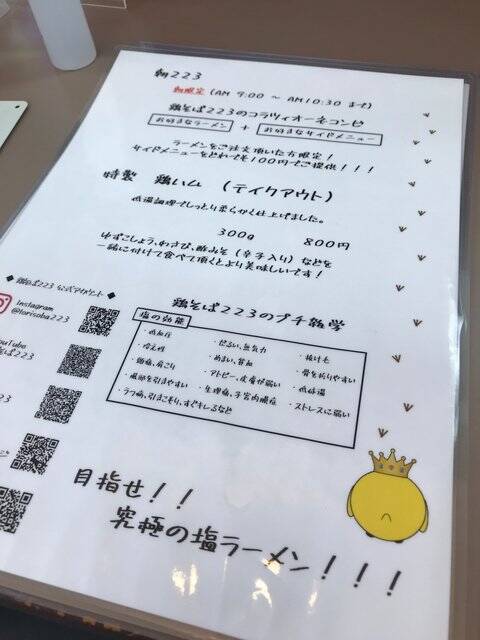 朝223
朝限定 (AM 9:00 ～ AM10:30 まで)
鶏そば223のコラツィオーネコンビ
お好きなラーメン + お好きなサイドメニュー
ラーメンをご注文頂いた方限定！
サイドメニューをどれでも100円でご提供！！！
特製 鶏ハム (テイクアウト)
低温調理でしっとり柔らかく仕上げました。
300g 800円
ゆずこしょう、わさび、酢みそ (辛子入り) などを
一緒に付けて食べて頂くとより美味しいです！
◆ 鶏そば223 公式アカウント ◆
Instagram
@torisoba223
YouTube
そば223
223
鶏そば223のプチ雑学
塩の効能
・低血圧 ・だるい、無気力 ・抜け毛
・冷え性 ・めまい、貧血 ・骨を折りやすい
・頭痛、肩こり ・アトピー、皮膚が弱い ・低体温
・風邪を引きやすい ・生理痛、子宮内膜症 ・ストレスに弱い
・うつ病、引きこもり、すぐキレるなど
目指せ！！
究極の塩ラーメン！！！